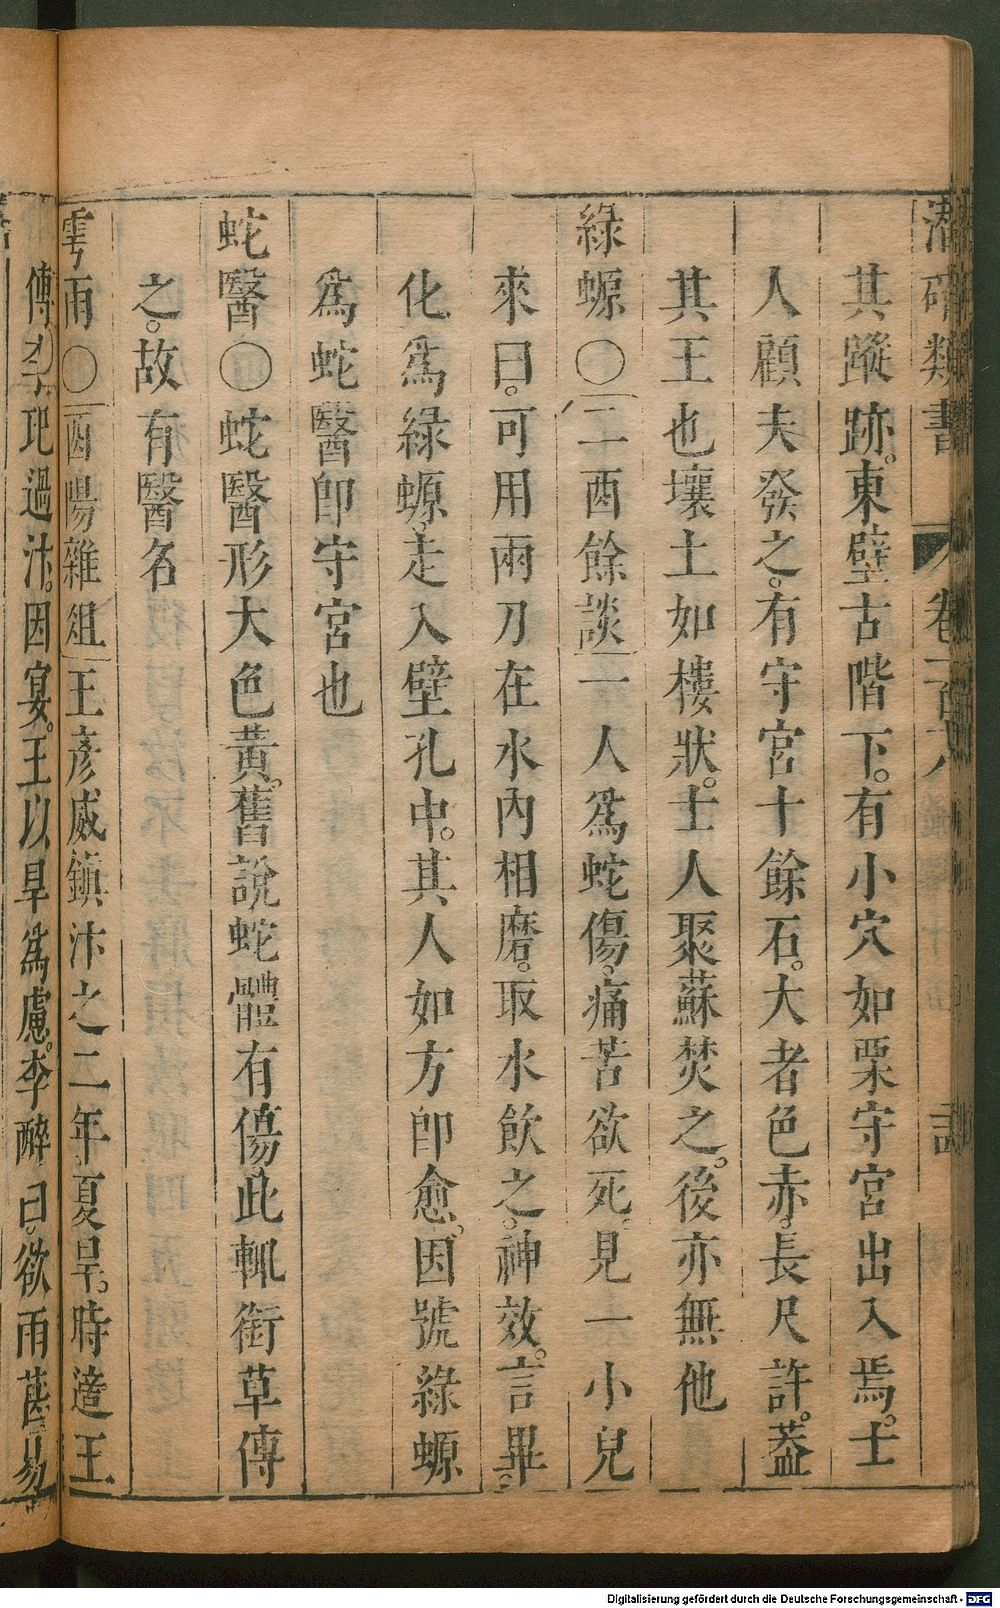 潛確類書 卷一百
其蹤跡。東壁古階下。有小穴如栗守宮出入焉。士
人顧夫發之。有守宮十餘石。大者色赤。長尺許。葢
其王也壤土如樓狀。士人聚蘇焚之。後亦無他
綠螈〇二酉餘談一人爲蛇傷。痛苦欲死。見一小兒
來曰。可用兩刀在水內相磨。取水飲之。神效。言畢。
化爲綠螈。走入壁孔中。其人如方卽愈。因號綠螈
爲蛇醫卽守宮也
蛇醫〇蛇醫形大色黃。舊說蛇體有傷此輒銜草傳
之。故有醫名
雩雨〇酉陽雜俎王彥威鎮汴之二年夏旱。時遣王
傅李玘過汴。因宴。王以旱爲慮。李醉曰。欲雨甚易
Digitalisierung gefördert durch die Deutsche Forschungsgemeinschaft - DFG